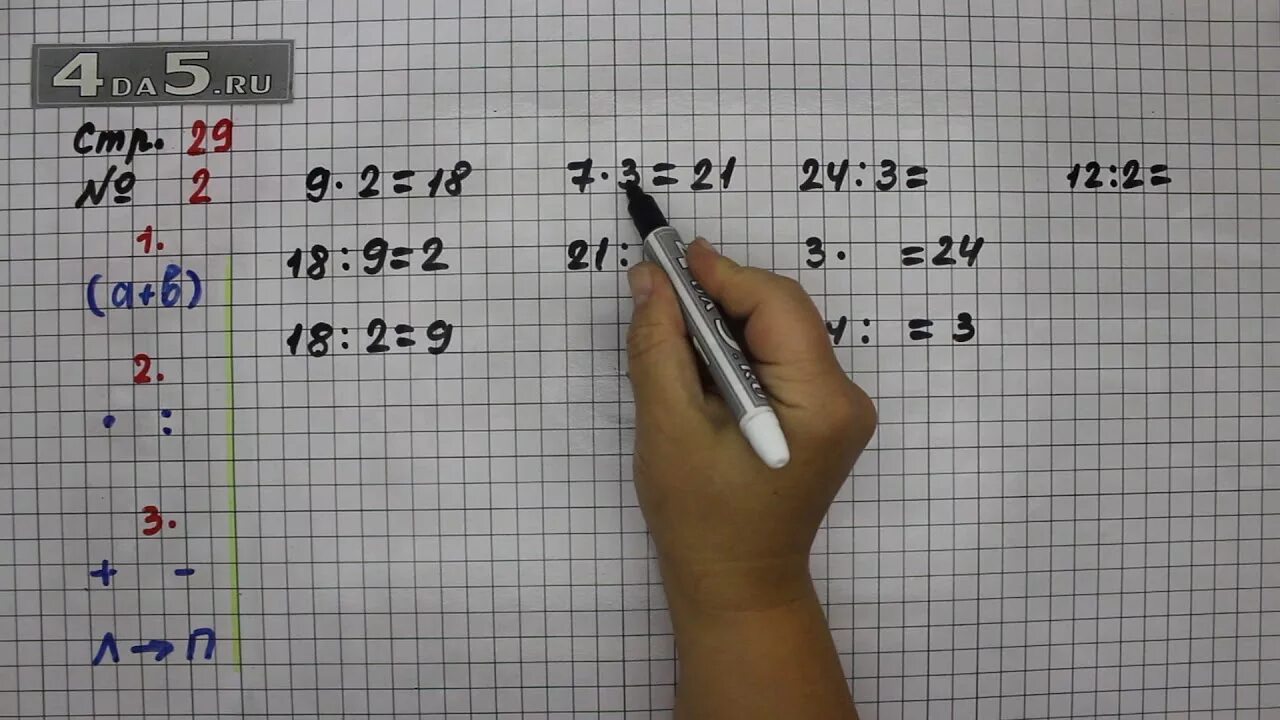 4DA5.RU
Стр. 29
№ 2
9 · 2 = 18
7 · 3 = 21
24 : 3 =
12 : 2 =
1.
(а+в)
18 : 9 = 2
21 :
3 ·   = 24
18 : 2 = 9
4 :   = 3
2.
·   :
3.
+   -
Л → П